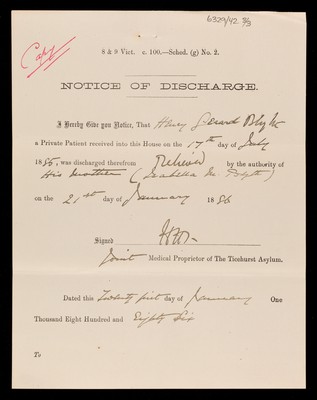 6329/42 5/3
Copy
8 & 9 Vict. c. 100.—Sched. (g) No. 2.
NOTICE OF DISCHARGE.
I Hereby Give you Notice, That Henry Gerard Blyth
a Private Patient received into this House on the 17th day of July
1885, was discharged therefrom Relieved by the authority of
His Mother (Isabella M. Blyth)
on the 21st day of January 1886
Signed
Joint Medical Proprietor of The Ticehurst Asylum.
Dated this Twenty first day of January One
Thousand Eight Hundred and Eighty Six
To